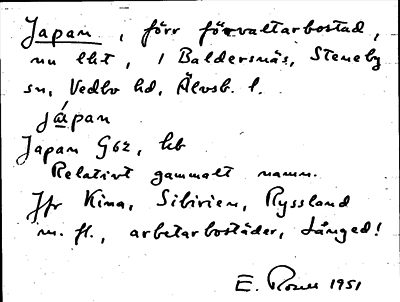 Japan, förr förvaltarbostad,
nu lht, i Baldersnäs, Steneby
sn, Vedbo hd, Älvsb. l.
jápan
Japan G62, hb
Relativt gammalt namn.
Jfr Kina, Sibirien, Ryssland
m. fl., arbetarbostäder, Långed!
E. 1951